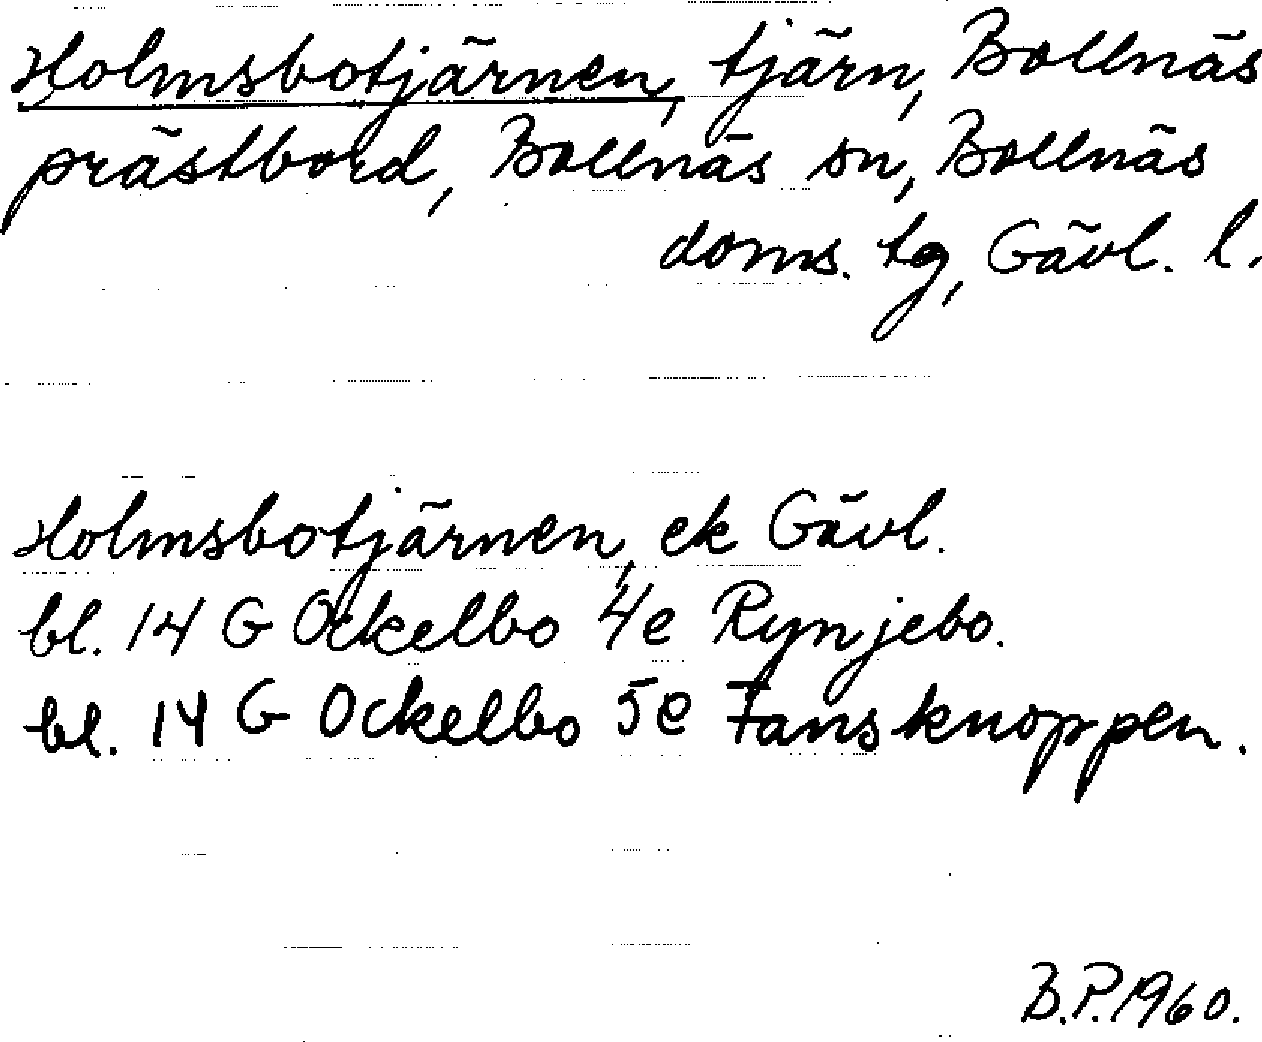 Holmsbotjärnen, tjärn, Bollnäs
prästbord, Bollnäs sn, Bollnäs
doms. tg, Gävl. l.
Holmsbotjärnen, ek Gävl.
bl. 14 G Ockelbo 4e Rynjebo.
bl. 14 G Ockelbo 5e Fansknoppen.
B.P. 1960.